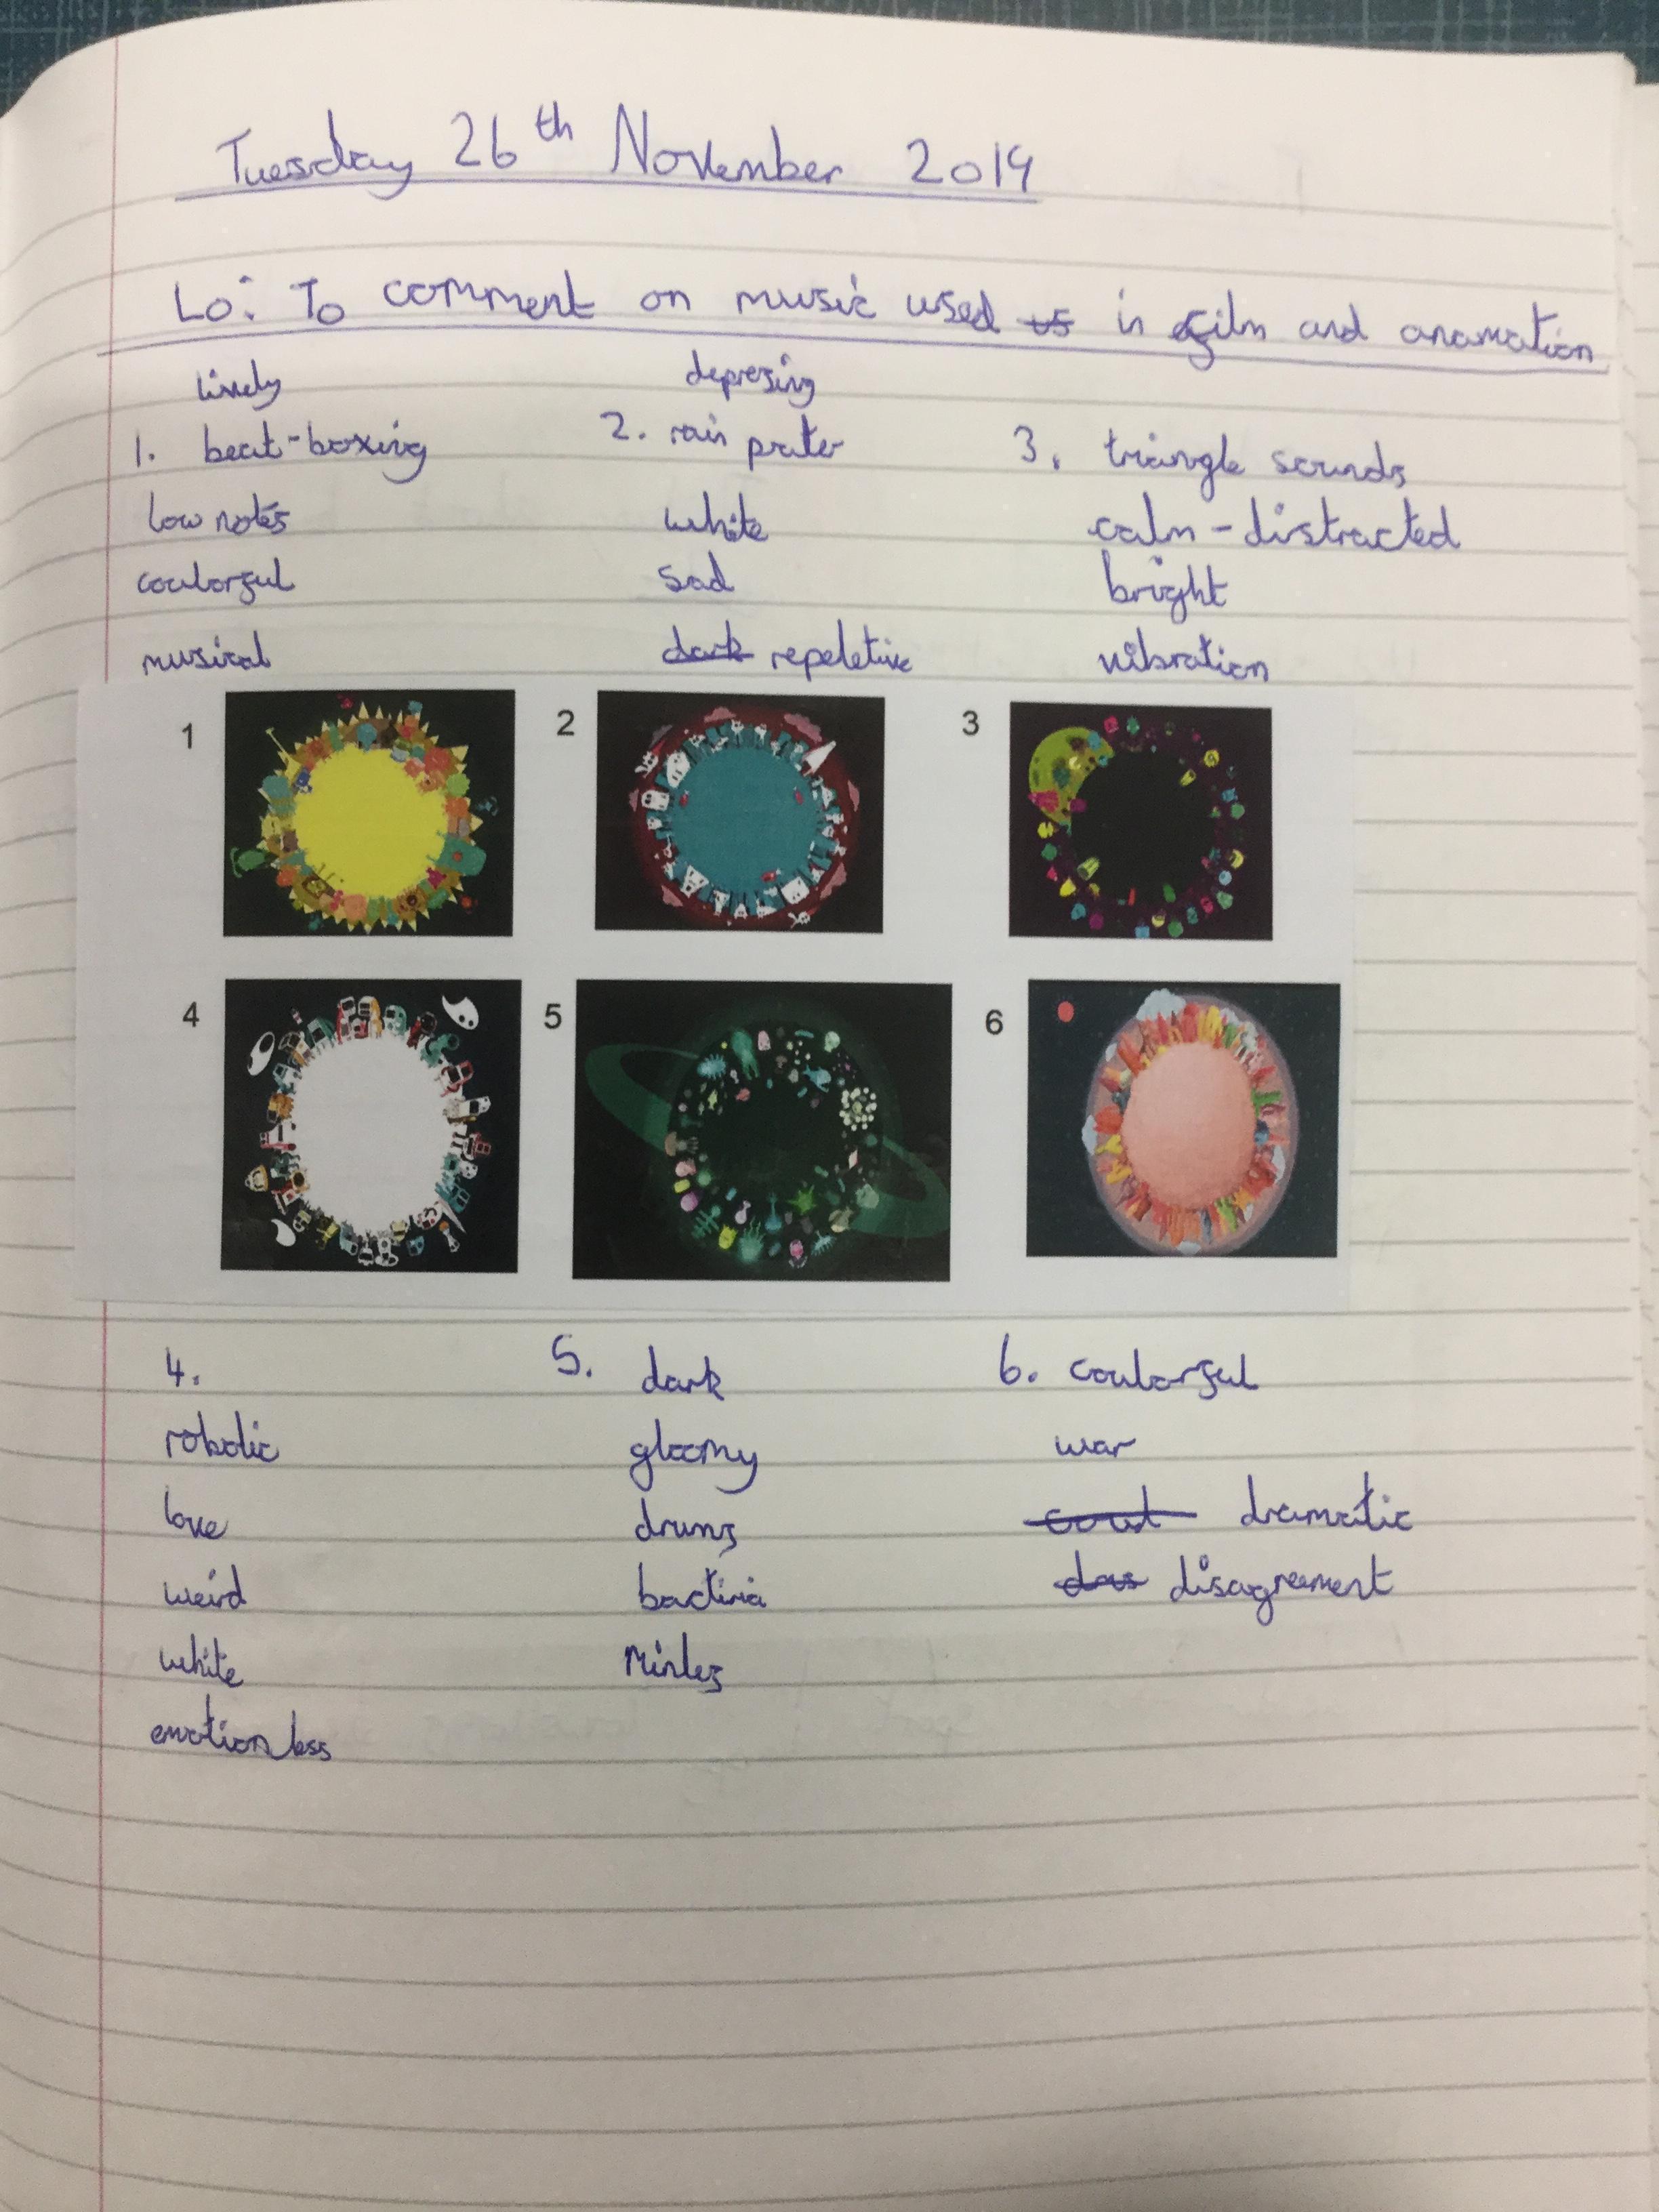 Tuesday 26th November 2019
Lo: To comment on music used us in film and anamation
lively
depresing
1. beat-boxing
2. rain prater
3. triangle sounds
low notes
white
calm - distracted
coulorful
sad
bright
musical
dark repeletive
vibration
1
2
3
4
5
6
4.
5. dark
6. coulorful
robotic
gloomy
war
love
drums
dramatic
weird
bactiria
das disagreement
white
emotionless